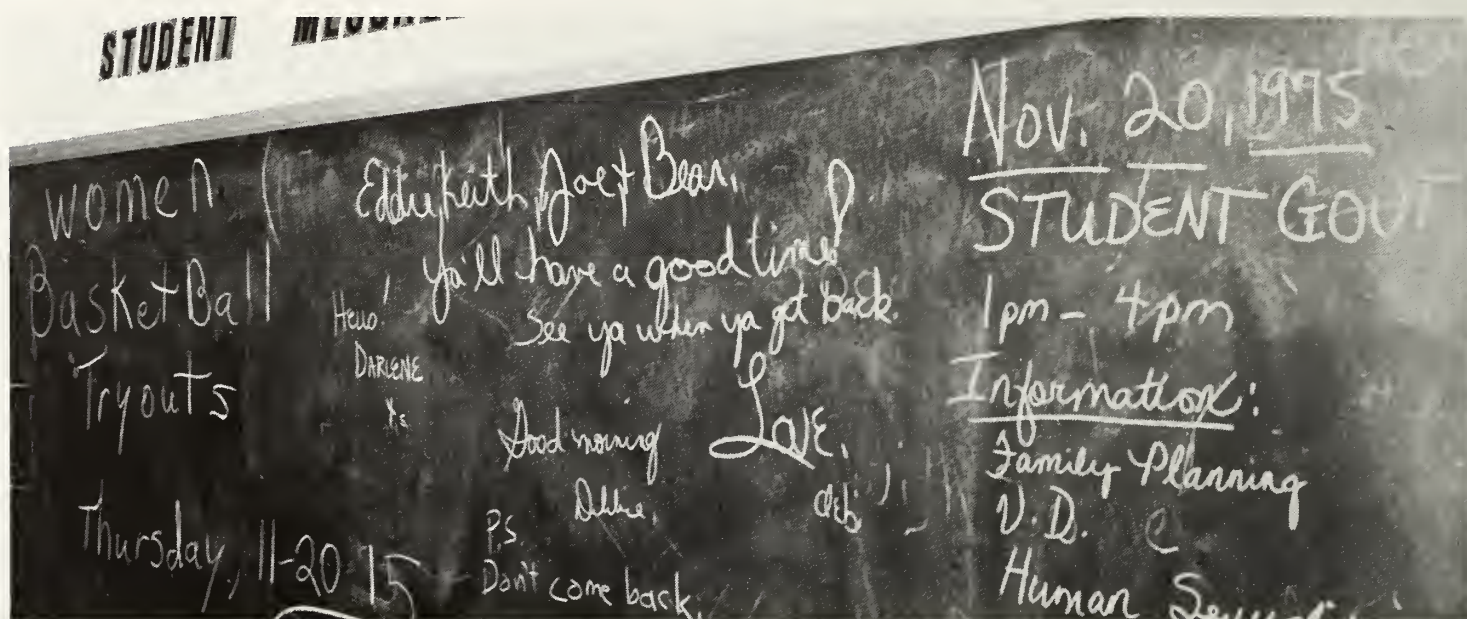 STUDENT
women
BasketBall
Tryouts
Thursday, 11-20-75
Eddie, Keith, Joe & Bear,
Ya'll have a good time!
See ya when ya get back.
Love,
deb
Hello
DARLENE
Good morning
Debbie,
P.S.
Don't come back,
Nov. 20, 1975
STUDENT GOVT
1pm - 4pm
Information:
Family Planning
V.D.
Human